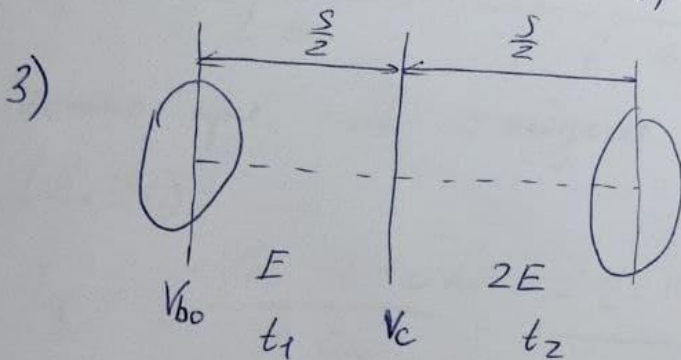 S/2 S/2
3)
E 2E
V_bo t_1 V_c t_2